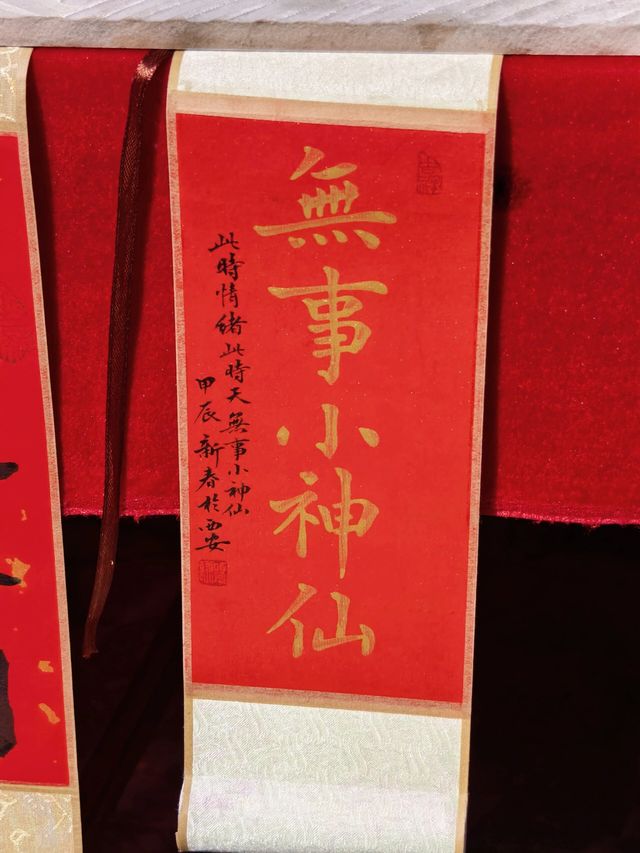 無事小神仙
此時情緒此時天無事小神仙
甲辰新春於西安